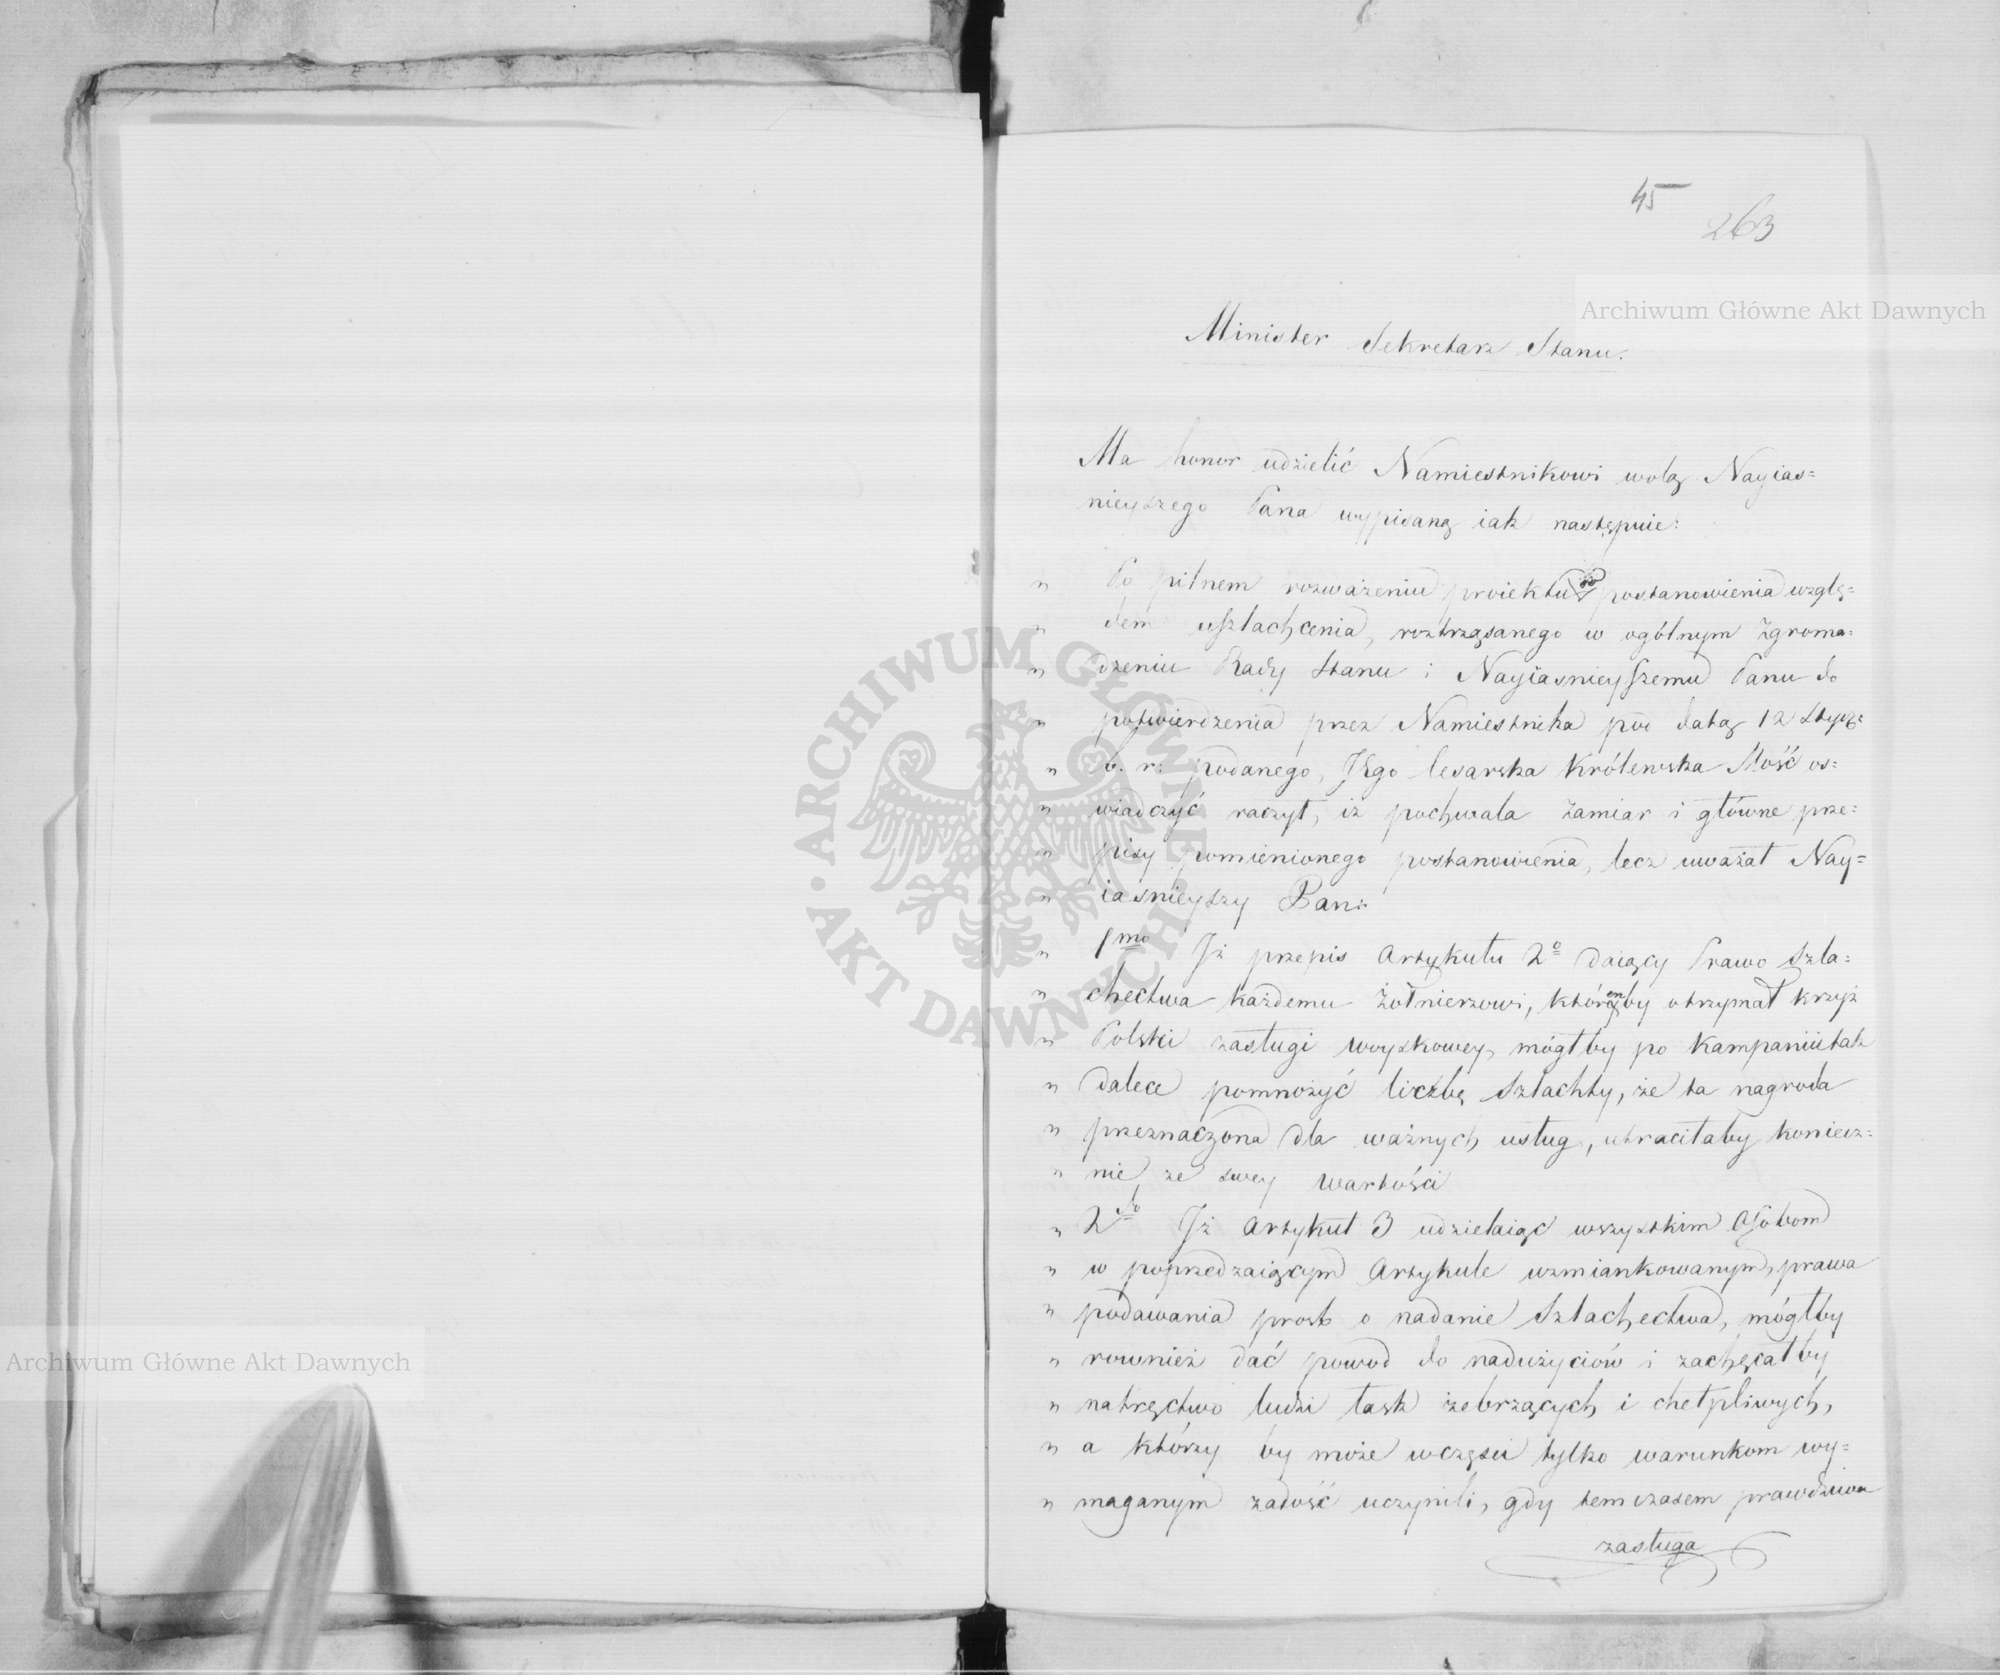 45
263
Archiwum Główne Akt Dawnych
Minister Sekretarz Stanu.
Ma honor udzielić Namiestnikowi wolą Nayias=
nieyszego Pana wypisaną iak następuie:
" Po pilnem rozważeniu proiektu postanowienia wzglę=
" dem uszlachcenia, roztrząsanego w ogólnym Zgroma=
" dzeniu Rady Stanu i Nayiasnieyszemu Panu do
" potwierdzenia przez Namiestnika pod datą 12 Stycz:
" b. r: podanego, JEgo Cesarska Królewska Mość os=
" wiadczyć raczył, iż pochwala zamiar i główne prze=
" pisy pomienionego postanowienia, lecz uważał Nay=
" iasnieyszy Pan:
" 1mo Iż przepis Artykułu 2o daiący Prawo Szla=
" chectwa każdemu Żołnierzowi, którenby otrzymał krzyż
" Polski zasługi woyskowey, mógłby po kampanii tak
" dalece pomnożyć liczbę Szlachty, że ta nagroda
" przeznaczona dla ważnych usług, utraciłaby koniecz=
" nie ze swey wartości
" 2do Iż Artykuł 3 udzielaiąc wszystkim Osobom
" w poprzedzaiącym Artykule wzmiankowanym, prawa
" podawania prosb o nadanie Szlachectwa, mógłby
" rownież dać powod do nadużyciów i zachęcałby
" natręctwo ludzi łask żebrzących i chełpliwych,
" a którzy by może wczęsci tylko warunkom wy=
" maganym zadość uczynili, gdy tem czasem prawdziwa
zasługa
Archiwum Główne Akt Dawnych
ARCHIWUM GŁÓWNE
AKT DAWNYCH